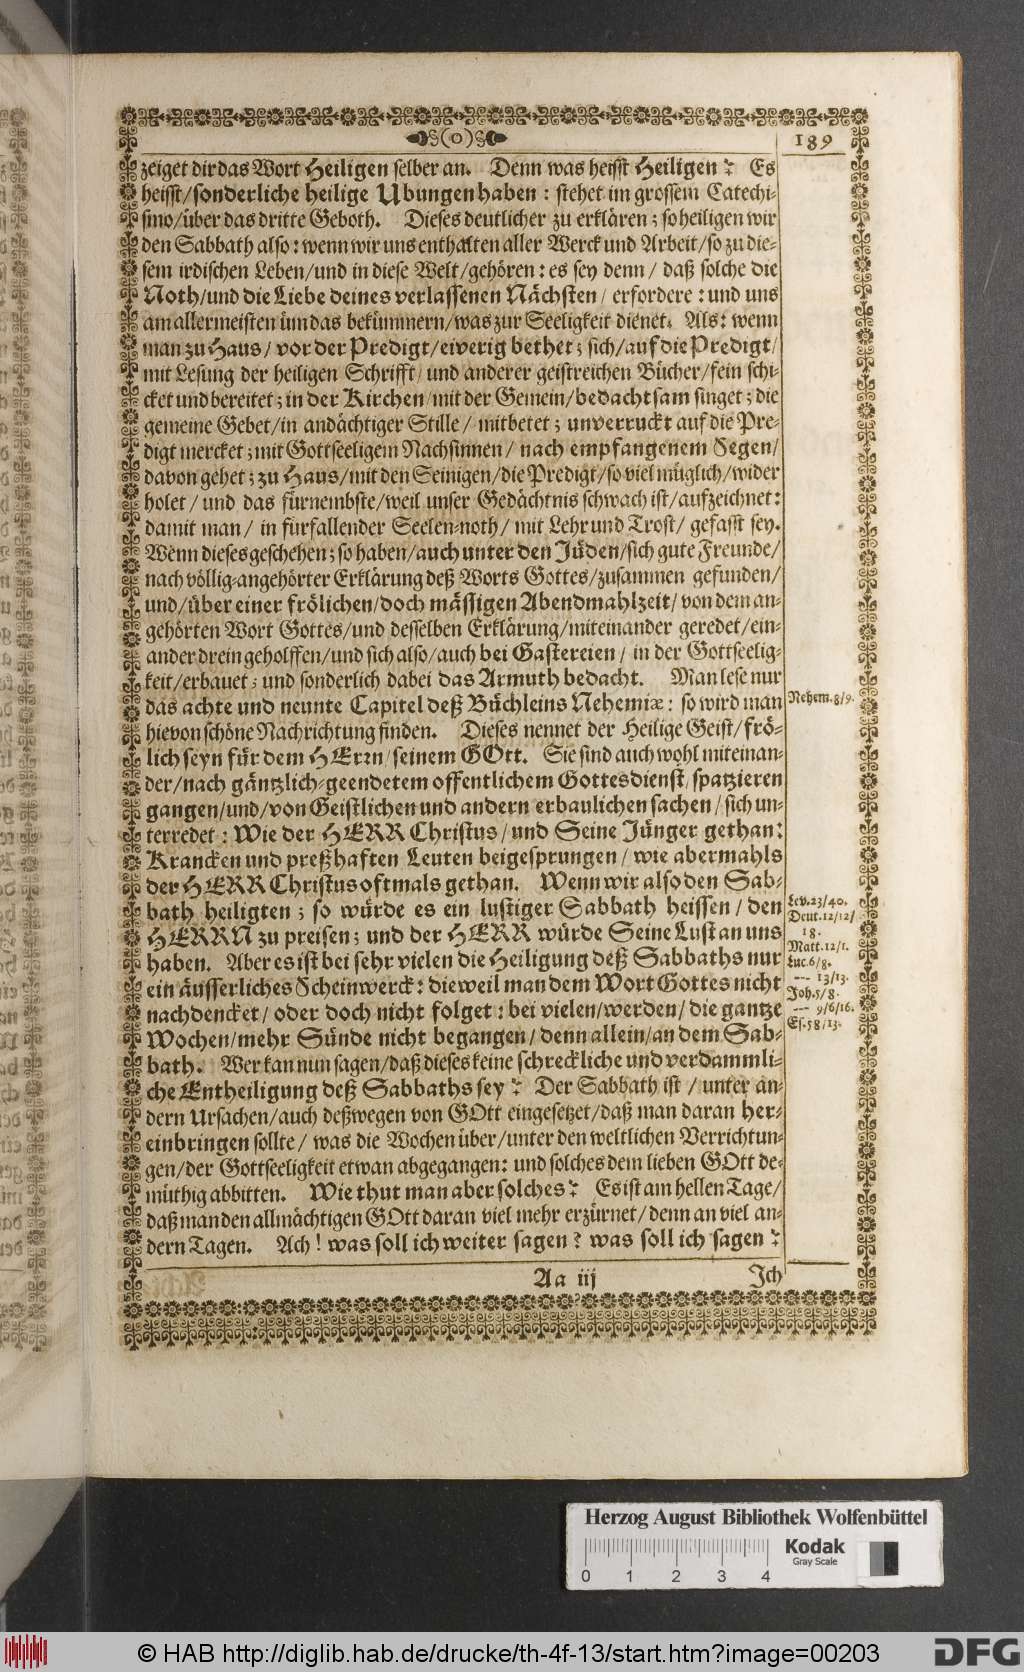 (o)
189
zeiget dir das Wort Heiligen selber an. Denn was heisst Heiligen? Es
heisst/sonderliche heilige Ubungen haben: stehet im grossem Catechi-
smo/über das dritte Geboth. Dieses deutlicher zu erklären; so heiligen wir
den Sabbath also: wenn wir uns enthalten aller Werck und Arbeit/so zu die-
sem irdischen Leben/und in diese Welt/gehören: es sey denn/ daß solche die
Noth/und die Liebe deines verlassenen Nächsten/ erfordere: und uns
am allermeisten üm das bekümmern/was zur Seeligkeit dienet. Als: wenn
man zu Haus/ vor der Predigt/eiverig bethet; sich/auf die Predigt/
mit Lesung der heiligen Schrifft/ und anderer geistreichen Bücher/fein schi-
cket und bereitet; in der Kirchen/mit der Gemein/bedachtsam singet; die
gemeine Gebet/in andächtiger Stille/ mitbetet; unverruckt auf die Pre-
digt mercket; mit Gottseeligem Nachsinnen/ nach empfangenem Segen/
davon gehet; zu Haus/mit den Seinigen/die Predigt/so viel müglich/wider
holet/ und das fürnembste/weil unser Gedächtnis schwach ist/aufzeichnet:
damit man/ in fürfallender Seelen-noth/ mit Lehr und Trost/ gefasst sey.
Wenn dieses geschehen; so haben/auch unter den Jüden/sich gute Freunde/
nach völlig-angehörter Erklärung deß Worts Gottes/zusammen gefunden/
und/über einer frölichen/doch mässigen Abendmahlzeit/ von dem an-
gehörten Wort Gottes/und desselben Erklärung/miteinander geredet/ein-
ander drein geholffen/und sich also/auch bei Gastereien/ in der Gottseelig-
keit/erbauet; und sonderlich dabei das Armuth bedacht. Man lese nur
das achte und neunte Capitel deß Büchleins Nehemiæ: so wird man
hievon schöne Nachrichtung finden. Dieses nennet der Heilige Geist/frö-
lich seyn für dem HErrn/seinem GOtt. Sie sind auch wohl miteinan-
der/nach gäntzlich-geendetem offentlichem Gottesdienst/spatzieren
gangen/und/von Geistlichen und andern erbaulichen sachen/sich un-
terredet: Wie der HERR Christus/und Seine Jünger gethan:
Krancken und preßhaften Leuten beigesprungen/ wie abermahls
der HERR Christus oftmals gethan. Wenn wir also den Sab-
bath heiligten; so würde es ein lustiger Sabbath heissen/den
HERRN zu preisen; und der HERR würde Seine Lust an uns
haben. Aber es ist bei sehr vielen die Heiligung deß Sabbaths nur
ein äusserliches Scheinwerck: dieweil man dem Wort Gottes nicht
nachdencket/ oder doch nicht folget: bei vielen/werden/die gantze
Wochen/mehr Sünde nicht begangen/denn allein/an dem Sab-
bath. Wer kan nun sagen/daß dieses keine schreckliche und verdammli-
che Entheiligung deß Sabbaths sey? Der Sabbath ist/ unter an-
dern Ursachen/auch deßwegen von GOtt eingesetzet/daß man daran her-
einbringen sollte/ was die Wochen über/unter den weltlichen Verrichtun-
gen/der Gottseeligkeit etwan abgegangen: und solches dem lieben GOtt de-
müthig abbitten. Wie thut man aber solches? Es ist am hellen Tage/
daß man den allmächtigen GOtt daran viel mehr erzürnet/denn an viel an-
dern Tagen. Ach! was soll ich weiter sagen? was soll ich sagen?
Aa iij
Jch
Nehem.8/9.
Lev.23/40.
Deut.12/12/
18.
Matt.12/1.
Luc.6/8.
--- 13/13.
Joh.5/8.
--- 9/6/16.
Es.58/13.
Herzog August Bibliothek Wolfenbüttel
Kodak
Gray Scale
0 1 2 3 4
© HAB http://diglib.hab.de/drucke/th-4f-13/start.htm?image=00203
DFG